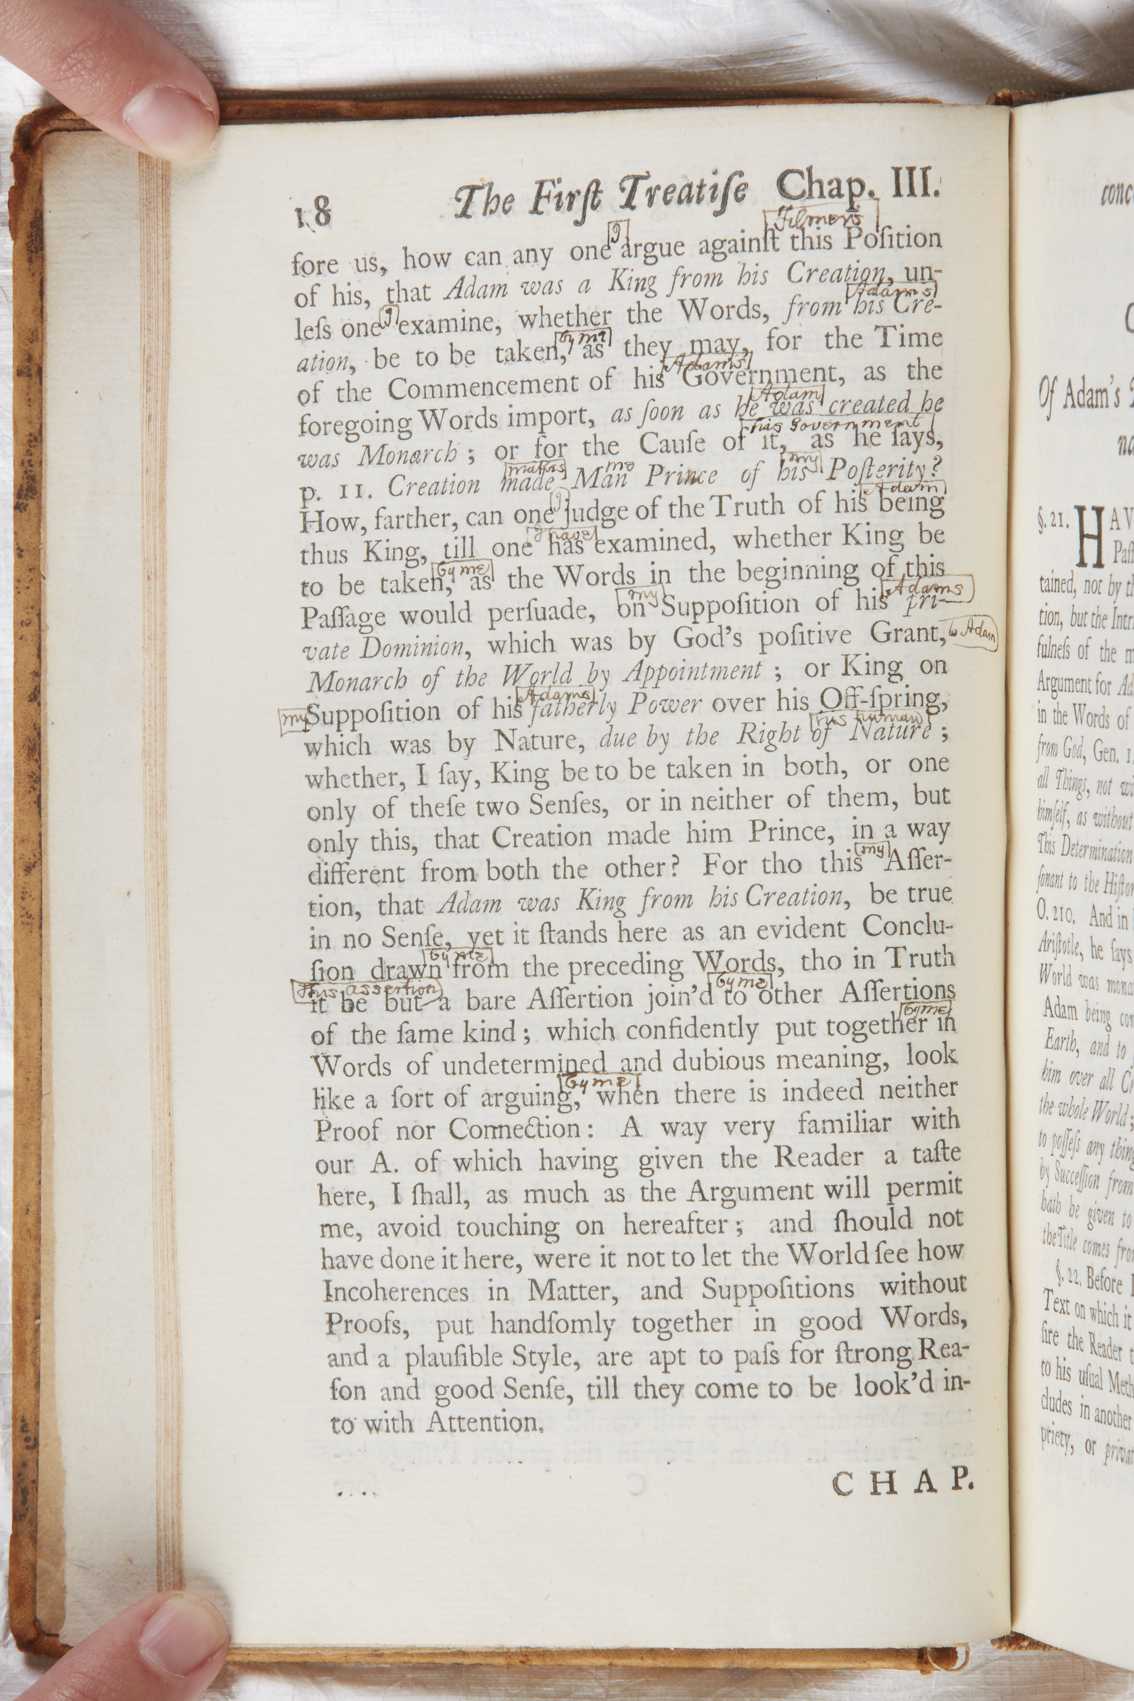 18 The First Treatiſe Chap. III.
Filmers
I
fore us, how can any one argue againſt this Poſition
of his, that Adam was a King from his Creation, un-
I Adams
leſs one examine, whether the Words, from his Cre-
by me
ation, be to be taken, as they may, for the Time
Adams
of the Commencement of his Government, as the
Adam
foregoing Words import, as ſoon as he was created he
his Government
was Monarch; or for the Cauſe of it, as he ſays,
makes me my
p. 11. Creation made Man Prince of his Poſterity?
I Adam
How, farther, can one judge of the Truth of his being
I have
thus King, till one has examined, whether King be
by me
to be taken, as the Words in the beginning of this
my Adams
Paſſage would perſuade, on Suppoſition of his pri-
vate Dominion, which was by God's poſitive Grant,
to Adam
Monarch of the World by Appointment; or King on
my Adams
Suppoſition of his fatherly Power over his Off-ſpring,
his human
which was by Nature, due by the Right of Nature;
whether, I ſay, King be to be taken in both, or one
only of theſe two Senſes, or in neither of them, but
only this, that Creation made him Prince, in a way
my
different from both the other? For tho this Aſſer-
tion, that Adam was King from his Creation, be true
in no Senſe, yet it ſtands here as an evident Conclu-
by me
ſion drawn from the preceding Words, tho in Truth
This assertion by me
it be but a bare Aſſertion join'd to other Aſſertions
by me
of the ſame kind; which confidently put together in
Words of undetermined and dubious meaning, look
by me
like a ſort of arguing, when there is indeed neither
Proof nor Connection: A way very familiar with
our A. of which having given the Reader a taſte
here, I ſhall, as much as the Argument will permit
me, avoid touching on hereafter; and ſhould not
have done it here, were it not to let the World ſee how
Incoherences in Matter, and Suppoſitions without
Proofs, put handſomly together in good Words,
and a plauſible Style, are apt to paſs for ſtrong Rea-
ſon and good Senſe, till they come to be look'd in-
to with Attention.
CHAP.
conc
Of Adam's
§. 21. HAV
Paſſ
tained, not by
tion, but the
fulneſs of the
Argument for
in the Words of
from God, Gen. 1.
all Things, not
himſelf, as without
This Determination
ſonant to the
O. 210. And in
Ariſtotle, he ſays
World was
Adam being
Earth, and to
him over all
the whole World;
to poſſeſs any thing
by Succeſſion from
hath be given to
the Title comes
§. 22. Before I
Text on which it
ſire the Reader
to his uſual
cludes in another
priety, or